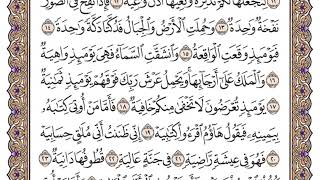 لِنَجْعَلَهَا لَكُمْ تَذْكِرَةً وَتَعِيَهَا أُذُنٌ وَٰعِيَةٌ ١٢ فَإِذَا نُفِخَ فِى ٱلصُّورِ
نَفْخَةٌ وَٰحِدَةٌ ١٣ وَحُمِلَتِ ٱلْأَرْضُ وَٱلْجِبَالُ فَدُكَّتَا دَكَّةً وَٰحِدَةً ١٤
فَيَوْمَئِذٍ وَقَعَتِ ٱلْوَاقِعَةُ ١٥ وَٱنشَقَّتِ ٱلسَّمَآءُ فَهِىَ يَوْمَئِذٍ وَاهِيَةٌ ١٦
وَٱلْمَلَكُ عَلَىٰٓ أَرْجَآئِهَا وَيَحْمِلُ عَرْشَ رَبِّكَ فَوْقَهُمْ يَوْمَئِذٍ ثَمَٰنِيَةٌ
١٧ يَوْمَئِذٍ تُعْرَضُونَ لَا تَخْفَىٰ مِنكُمْ خَافِيَةٌ ١٨ فَأَمَّا مَنْ أُوتِىَ كِتَٰبَهُۥ
بِيَمِينِهِۦ فَيَقُولُ هَآؤُمُ ٱقْرَءُوا۟ كِتَٰبِيَهْ ١٩ إِنِّى ظَنَنتُ أَنِّى مُلَٰقٍ حِسَابِيَهْ
٢٠ فَهُوَ فِى عِيشَةٍ رَّاضِيَةٍ ٢١ فِى جَنَّةٍ عَالِيَةٍ ٢٢ قُطُوفُهَا دَانِيَةٌ ٢٣